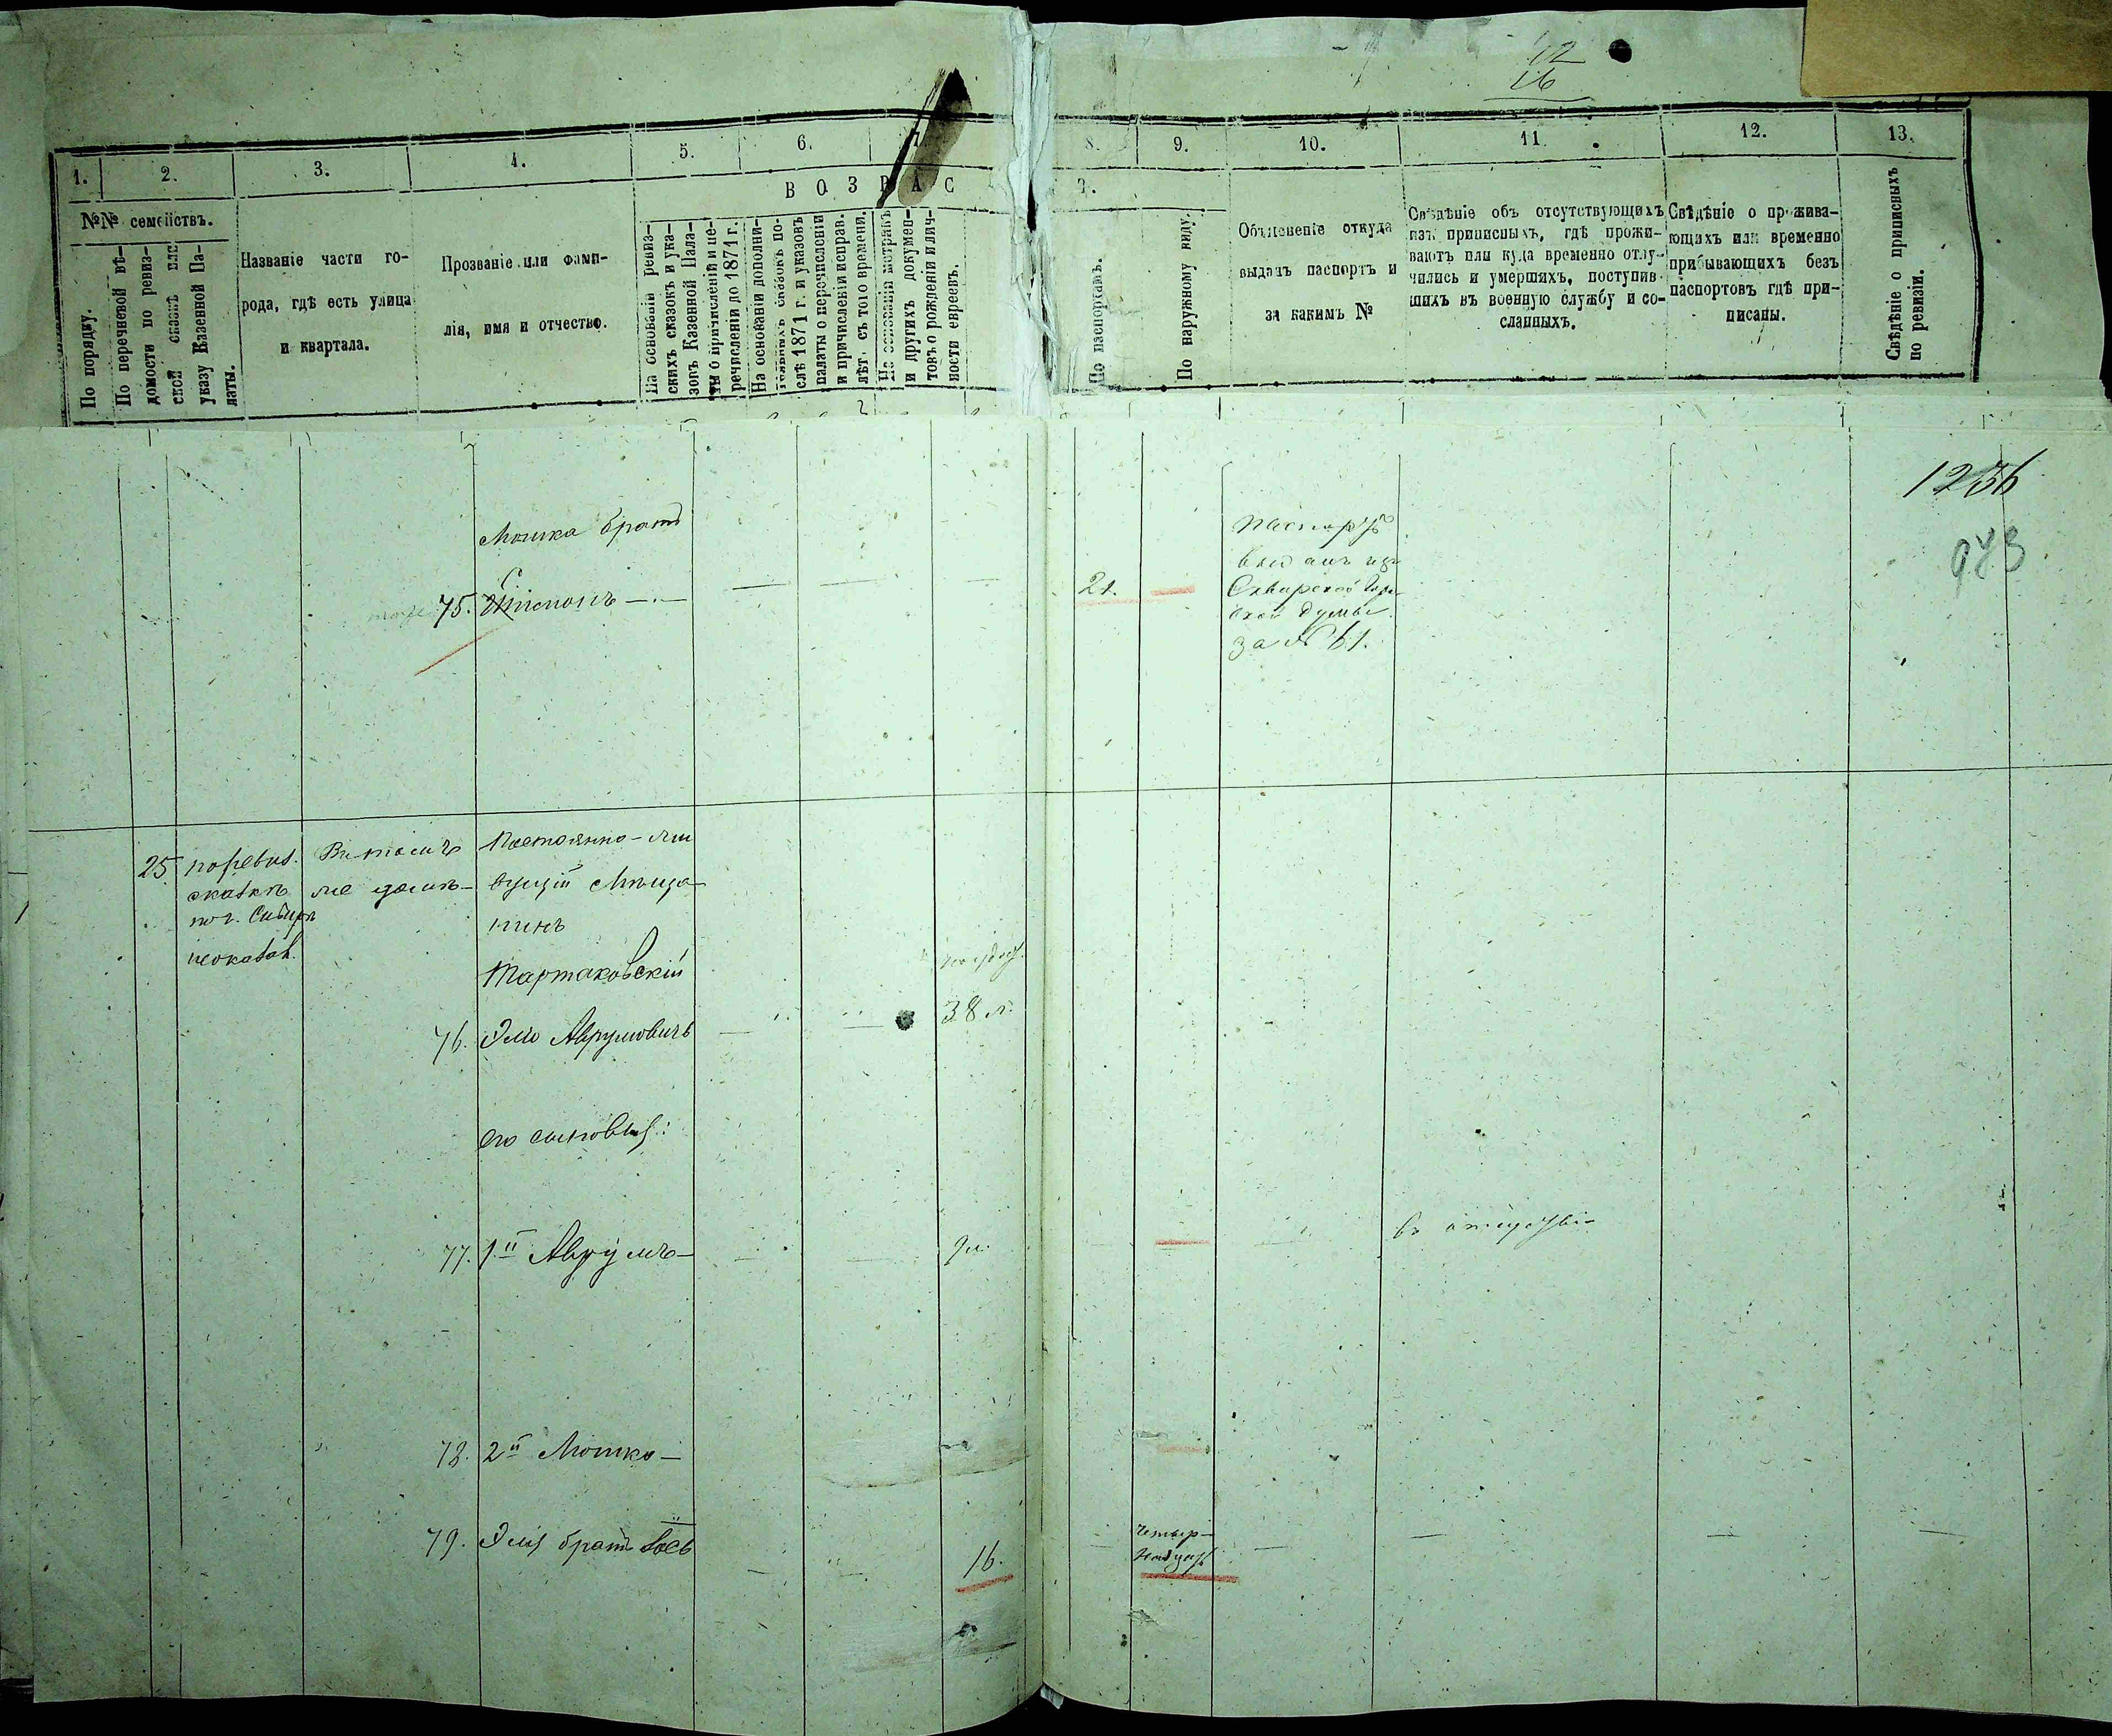 12
16
1.
2.
3.
4.
5.
6.
7.
8.
9.
10.
11.
12.
13.
№№ семействъ.
По порядку.
По перечневой вѣ-
домости по ревиз-
ской сказкѣ или
указу Казенной Па-
латы.
Названіе части го-
рода, гдѣ есть улица
и квартала.
Прозваніе или фами-
лія, имя и отчество.
ВОЗРАС
Т.
На основаніи ревиз-
скихъ сказокъ и ука-
зовъ Казенной Пала-
ты о причисленіи и пе-
речисленіи до 1871 г.
На основаніи дополни-
тельныхъ сказокъ по-
слѣ 1871 г. и указовъ
палаты о перечисленіи
и причисленіи исправ.
лѣт. съ того времени.
На основаніи метрикъ
и другихъ докумен-
товъ о рожденіи и лич-
ности евреевъ.
По паспортамъ.
По наружному виду.
Объясненіе откуда
выданъ паспортъ и
за какимъ №
Свѣдѣніе объ отсутствующихъ
изъ приписныхъ, гдѣ прожи-
ваютъ или куда временно отлу-
чились и умершихъ, поступив-
шихъ въ военную службу и со-
сланныхъ.
Свѣдѣніе о прожива-
ющихъ или временно
прибывающихъ безъ
паспортовъ гдѣ при-
писаны.
Свѣдѣніе о приписныхъ
по ревизіи.
1236
973
Мошка братъ
75.
21.
Паспортъ
выданъ изъ
Сквирской Горо-
ской думы
за № 61.
25
по ревиз.
сказкѣ
не показан.
Постоянно-жи
вущій Мѣща-
нинъ
Тартаковскій
76. Эліо Аврумовичъ
38 л.
его сыновья:
77. 1й Аврумъ —
9 л.
въ отсутстві-
78. 2й Мошко —
79. Элія братъ
16.
четыр-
надцать